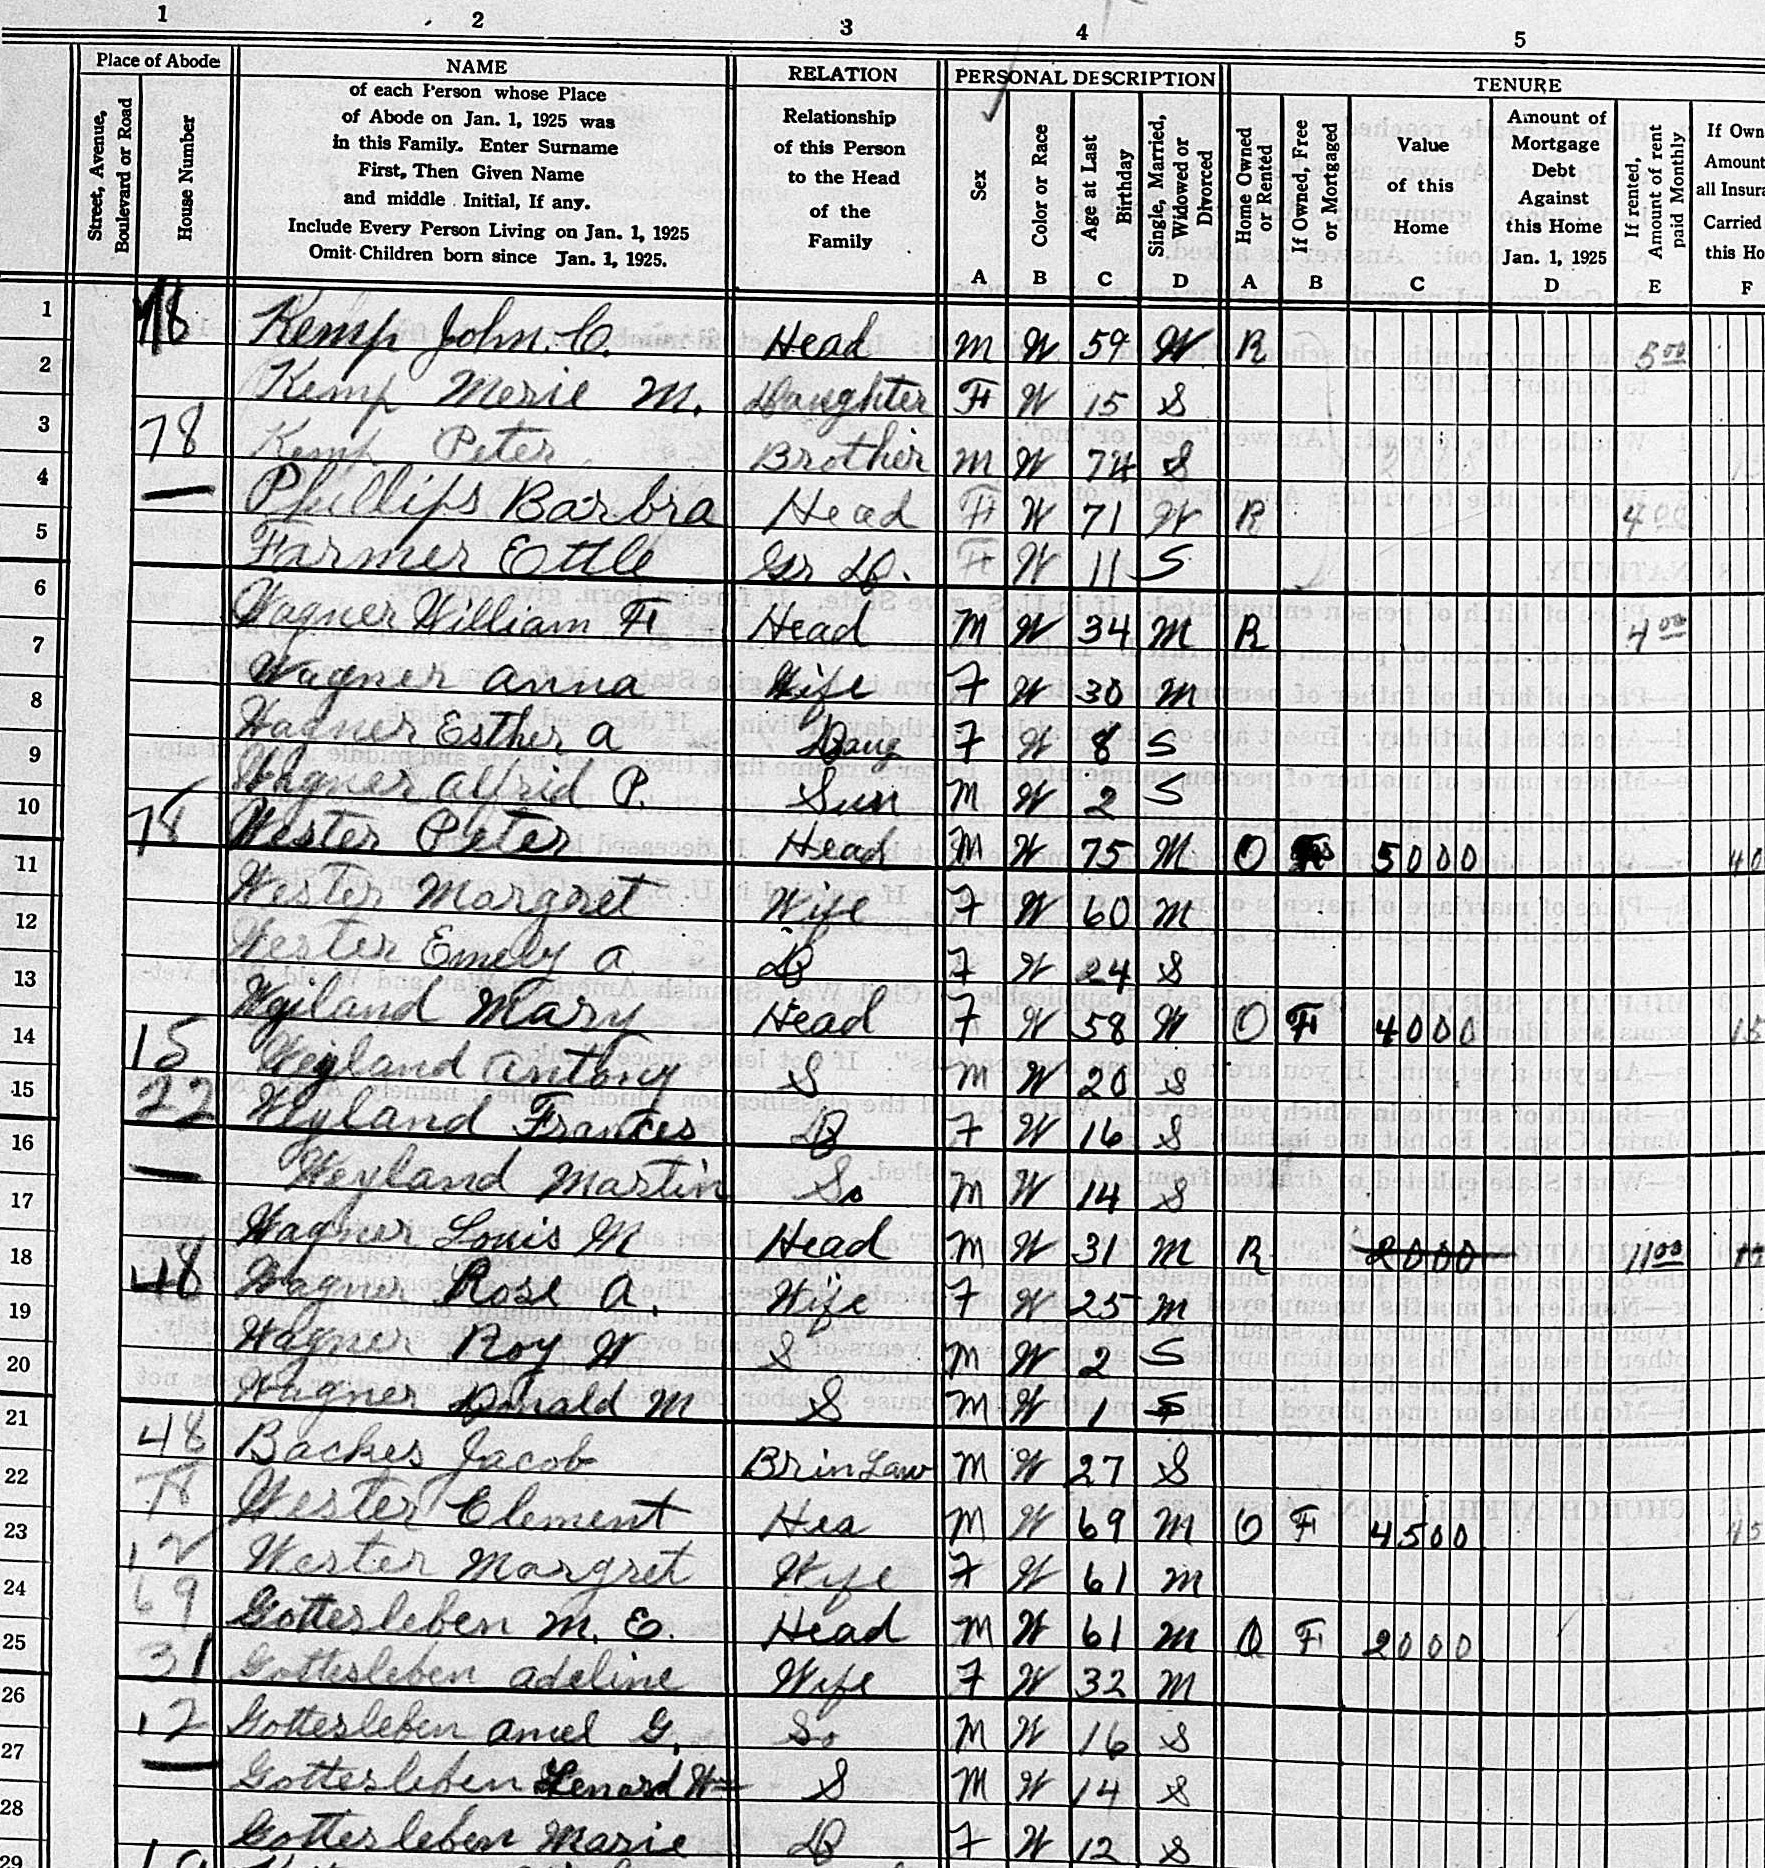 1 2 3 4 5
Place of Abode NAME RELATION PERSONAL DESCRIPTION TENURE
Street, Avenue, Boulevard or Road
House Number
of each Person whose Place
of Abode on Jan. 1, 1925 was
in this Family. Enter Surname
First, Then Given Name
and middle Initial, If any.
Include Every Person Living on Jan. 1, 1925
Omit Children born since Jan. 1, 1925.
Relationship
of this Person
to the Head
of the
Family
Sex
Color or Race
Age at Last Birthday
Single, Married, Widowed or Divorced
Home Owned or Rented
If Owned, Free or Mortgaged
Value
of this
Home
Amount of
Mortgage
Debt
Against
this Home
Jan. 1, 1925
If rented, Amount of rent paid Monthly
If Own
Amount
all Insura
Carried
this Ho
A B C D A B C D E F
1 78 Kemp John. C. Head M W 59 W R 5 00
2 Kemp Merie M. Daughter F W 15 S
3 78 Kemp Peter Brother M W 74 S
4 — Phillips Barbra Head F W 71 W R 4 00
5 Farmer Ottle Gr D. F W 11 S
6 Wagner William F Head M W 34 M R 4 00
7 Wagner Anna Wife F W 30 M
8 Wagner Esther A Daug F W 8 S
9 Wagner Alfrid P. Sun M W 2 S
10 78 Wester Peter Head M W 75 M O 5000 40
11 Wester Margret Wife F W 60 M
12 Wester Emely A D F W 24 S
13 Weiland Mary Head F W 58 W O F 4000 15
14 15 Weyland Antony S M W 20 S
15 22 Weyland Frances D F W 16 S
16 — Weyland Martin So M W 14 S
17 Wagner Louis M Head M W 31 M R 2000 11 00
18 48 Wagner Rose A. Wife F W 25 M
19 Wagner Roy W S M W 2 S
20 Wagner Donald M S M W 1 S
21 48 Backes Jacob Br in Law M W 27 S
22 78 Wester Clement Hea M W 69 M O F 4500 45
23 12 Wester Margret Wife F W 61 M
24 69 Gottesleben M. E. Head M W 61 M O F 2000
25 31 Gottesleben Adeline Wife F W 32 M
26 12 Gottesleben Amel G. So M W 16 S
27 — Gottesleben Lenard W S M W 14 S
28 Gottesleben Marie D F W 12 S
29